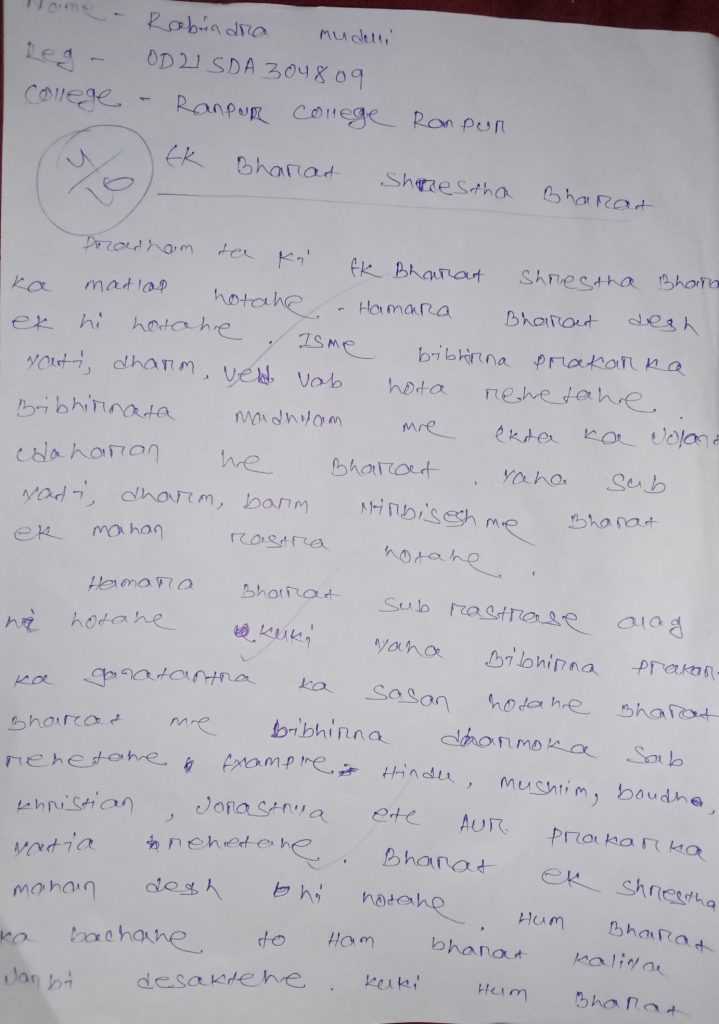 Name - Rabindra Muduli
Reg - OD21SDA304809
College - Ranpur College Ranpur
4/20
Ek Bharat Shrestha Bharat
Pratham ta ki Ek Bharat Shrestha Bhara
ka matlap hotahe. - Hamara Bharat desh
ek hi hotahe. Isme bibhinna prakar ka
yati, dharm, vab hota rehetahe.
Bibhinnata madhyam mre ekta ka Jolant
udaharan he Bharat. yaha sub
yati, dharm, barm Nirbisesh me Bharat
ek mahan rastra hotahe.
Hamara Bharat sub rastrase alag
hi hotahe kuki yaha Bibhinna prakar
ka ganatantra ka sasan hotahe Bharat
Bharat me bibhinna dharmoka sab
rehetahe Example Hindu, mushlim, boudha,
khristian, Jorastriya etc AUR prakar ka
yatia rehetahe. Bharat ek shrestha
mahan desh hi hotahe. Hum Bharat
ka bachahe to Ham bharat kaliya
Janbi desaktehe. kuki Hum Bharat